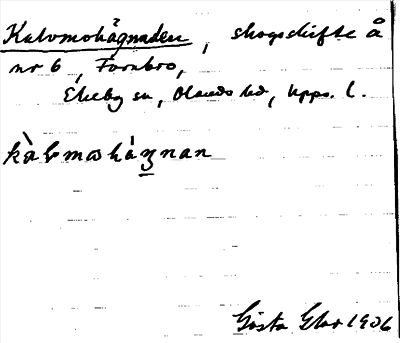 Kalvmohägnaden, skogsskifte å
nr 6, Fornbro,
Ekeby sn, Olands hd, Upps. l.
kàlvmωhá̀ŋnan
Gösta Elov 1906